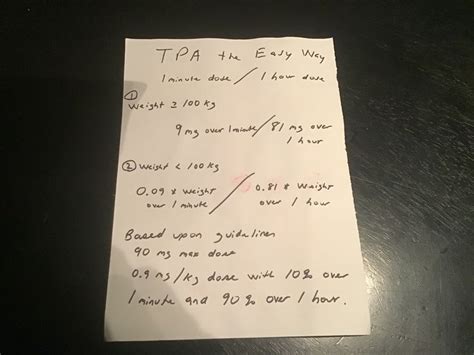 TPA the Easy Way
1 minute dose / 1 hour dose
① Weight ≥ 100 kg
9 mg over 1 minute / 81 mg over 1 hour
② Weight < 100 kg
0.09 * weight over 1 minute / 0.81 * weight over 1 hour
Based upon guidelines
90 mg max dose
0.9 mg/kg dose with 10% over
1 minute and 90% over 1 hour.